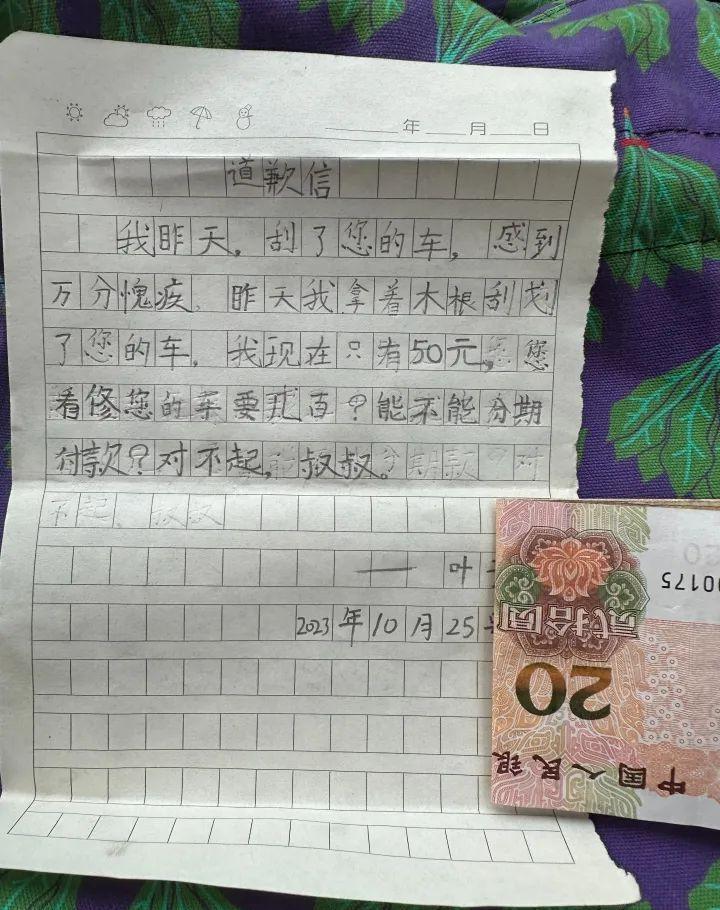 年 月 日
道歉信
我昨天，刮了您的车，感到
万分愧疚。昨天我拿着木根刮划
了您的车。我现在只有50元，您
看修您的车要我百？能不能分期
付款？对不起，叔叔。分期款？对
不起，叔叔
—— 叶
2023年10月25
00175
贰拾圆
20
中国人民银